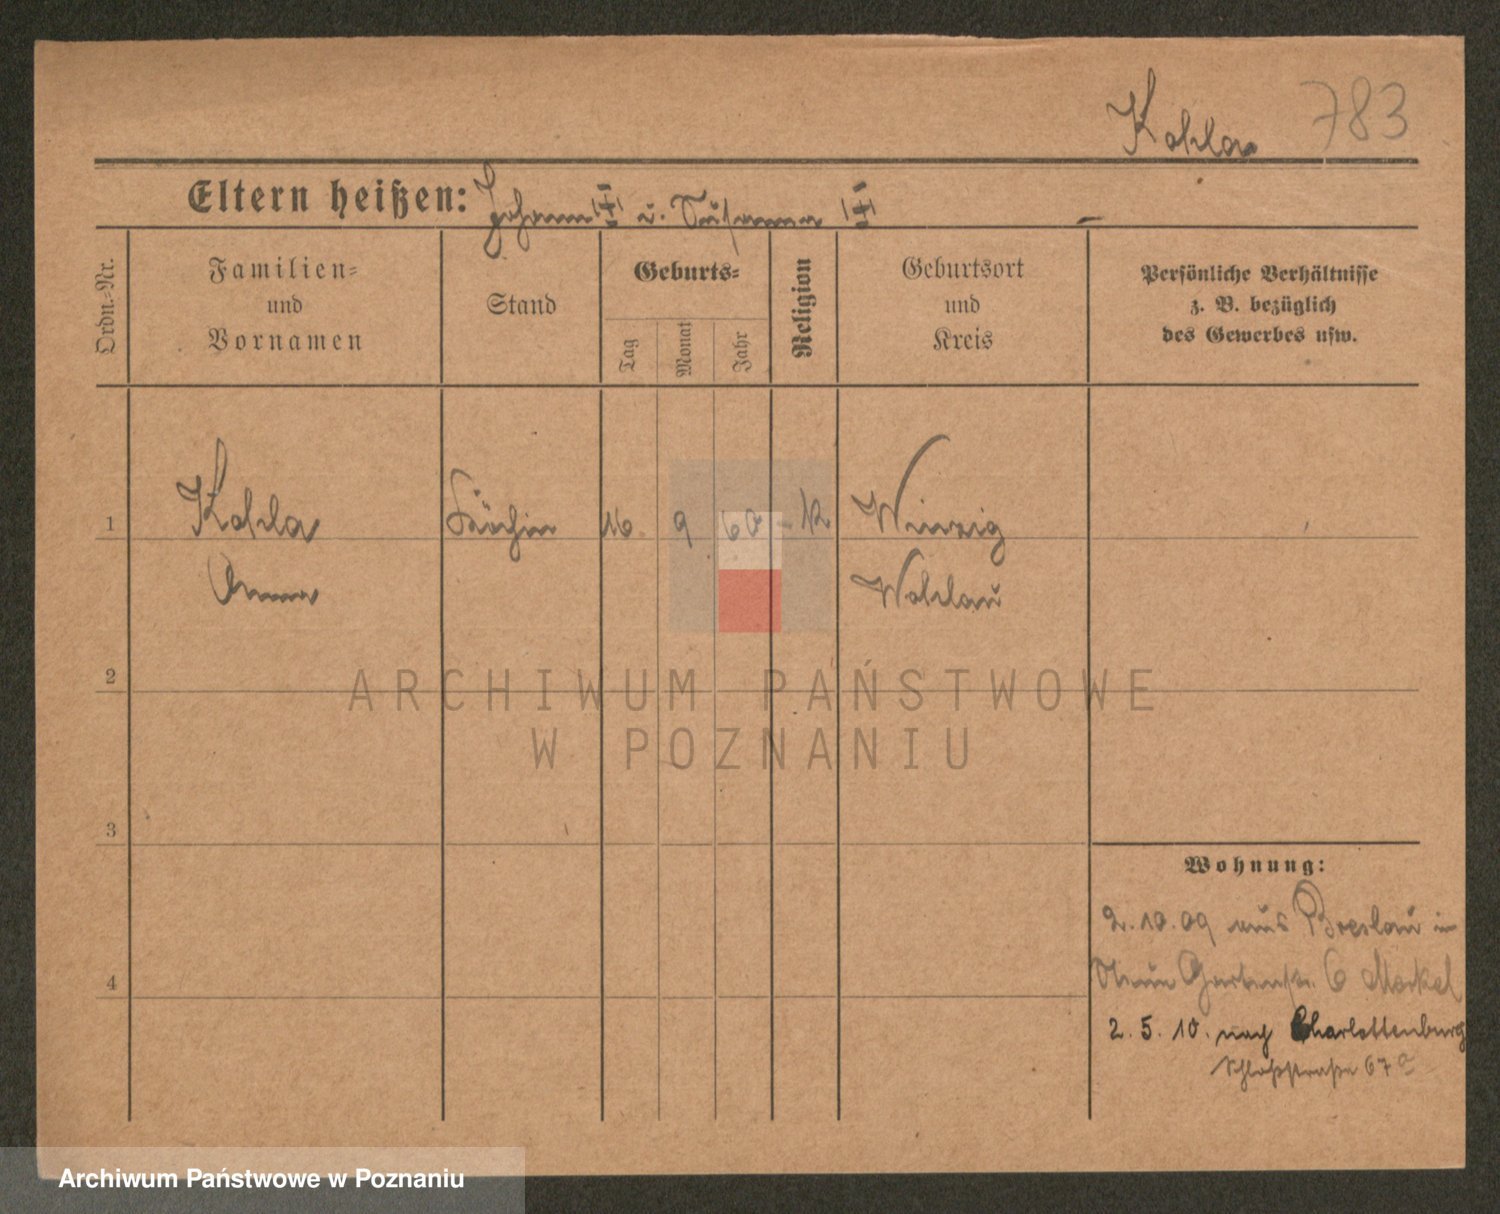 Kahla 783
Eltern heißen: Johann u. Susanna
Ordn.-Nr.
Familien-
und
Vornamen
Stand
Geburts-
Tag
Monat
Jahr
Religion
Geburtsort
und
Kreis
Persönliche Verhältnisse
z. B. bezüglich
des Gewerbes usw.
1 Kahla Köchin 16 9 60 K Winzig
Anna Wohlau
2
3
4
ARCHIWUM PAŃSTWOWE
W POZNANIU
Wohnung:
2.10.09 aus Breslau in
Gartenstr. 6 Merkel
2.5.10. nach Charlottenburg
Schloßstraße 67a
Archiwum Państwowe w Poznaniu